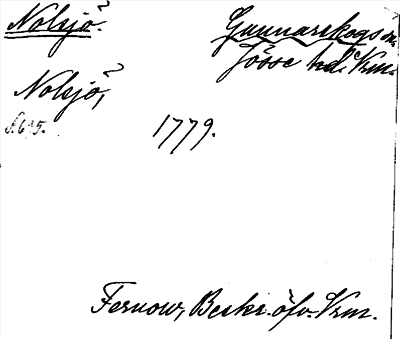 Nolsjö.
Gunnarskogs sn.
Jösse hd. Vrm.
Nolsjö,
S. 695.
1779.
Fernow, Beskr. öfv. Vrm.